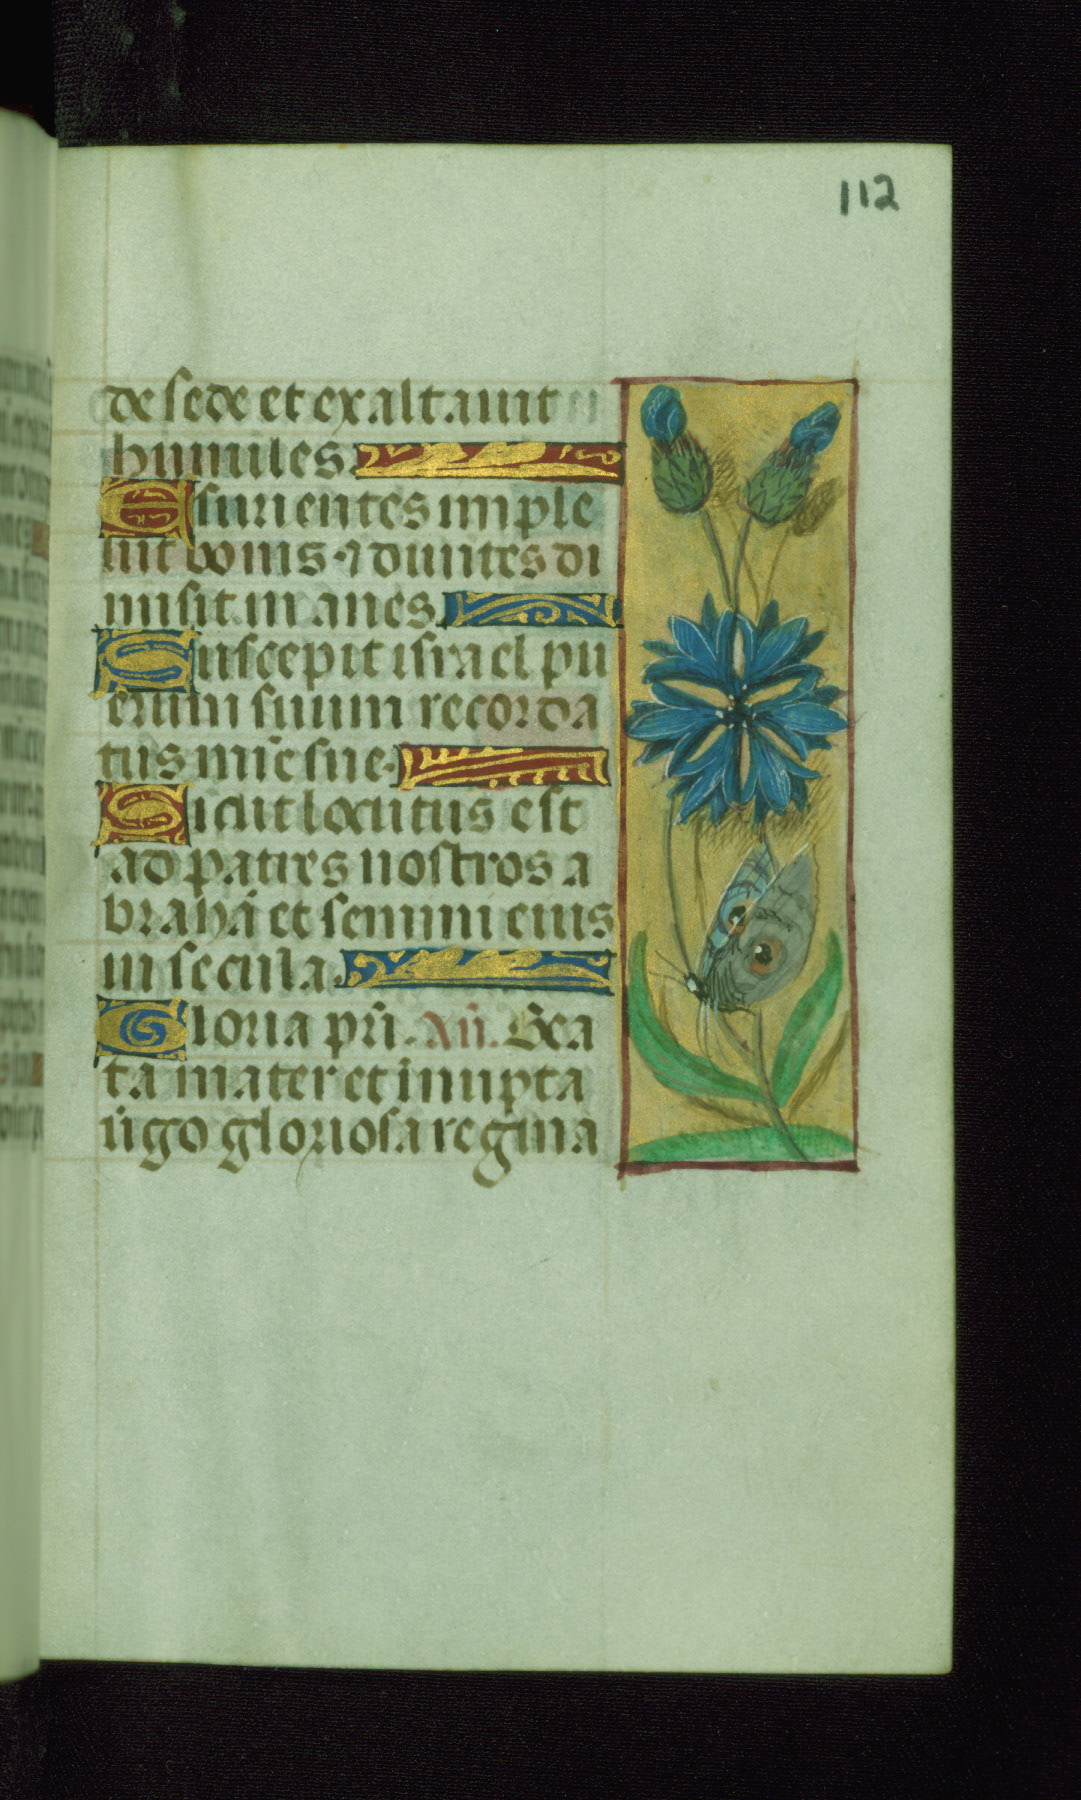 112
de sede et exaltauit
humiles.
Esurientes imple
uit bonis · ⁊ diuites di
misit inanes.
Suscepit israel pu
erum suum recorda
tus mi̅e sue.
Sicut locutus est
ad patres nostros a
brahã et semini eius
in secula.
Gloria pr̃i. Añ. Bea
ta mater et innupta
uĩgo gloriosa regina